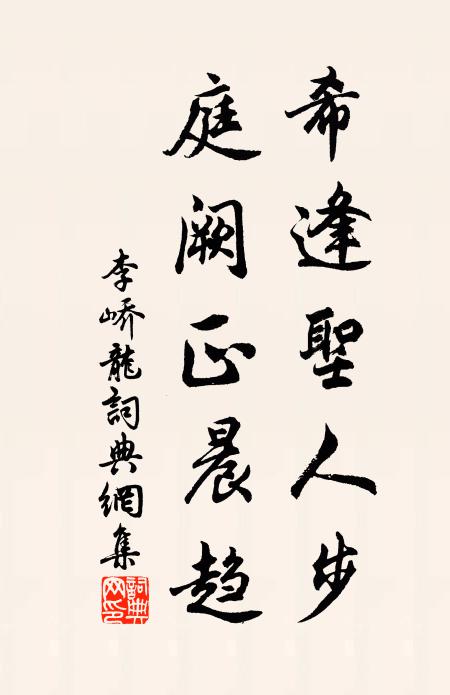 希逢聖人步
庭阙正晨趋
李嶠龍詞典網集
詞典網印